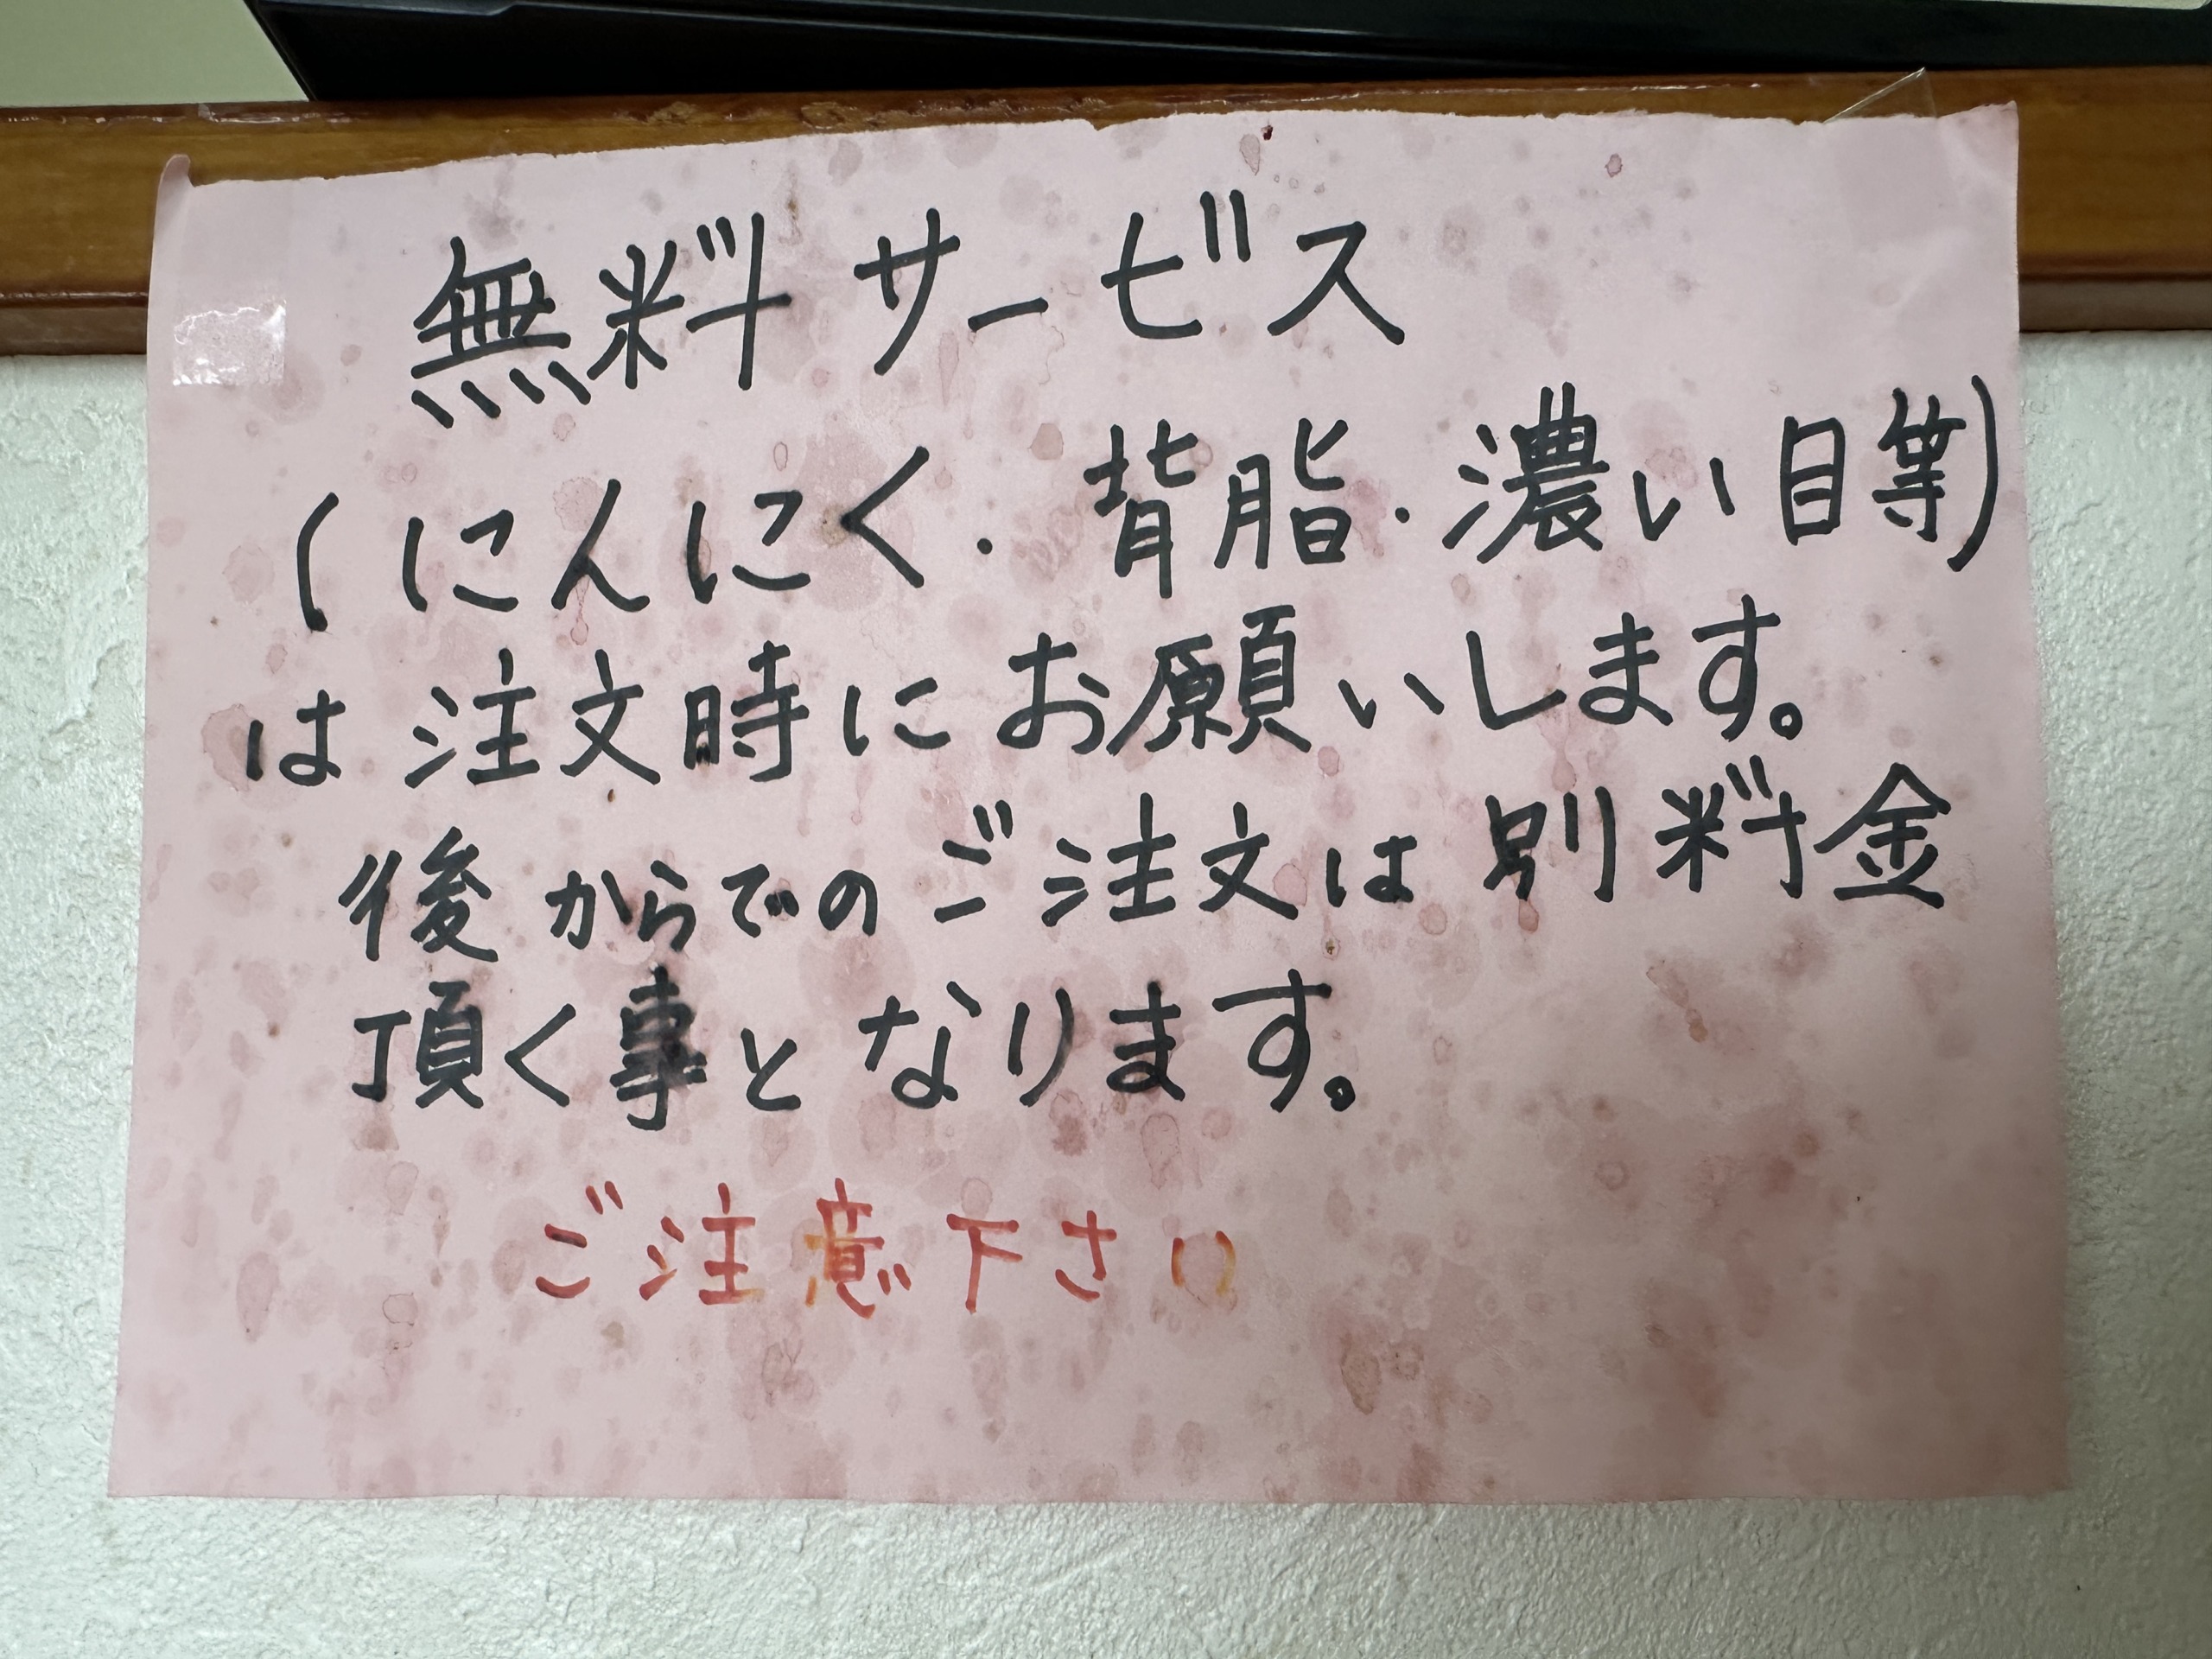 無料サービス
(にんにく・背脂・濃い目等)
は注文時にお願いします。
後からでのご注文は別料金
頂く事となります。
ご注意下さい